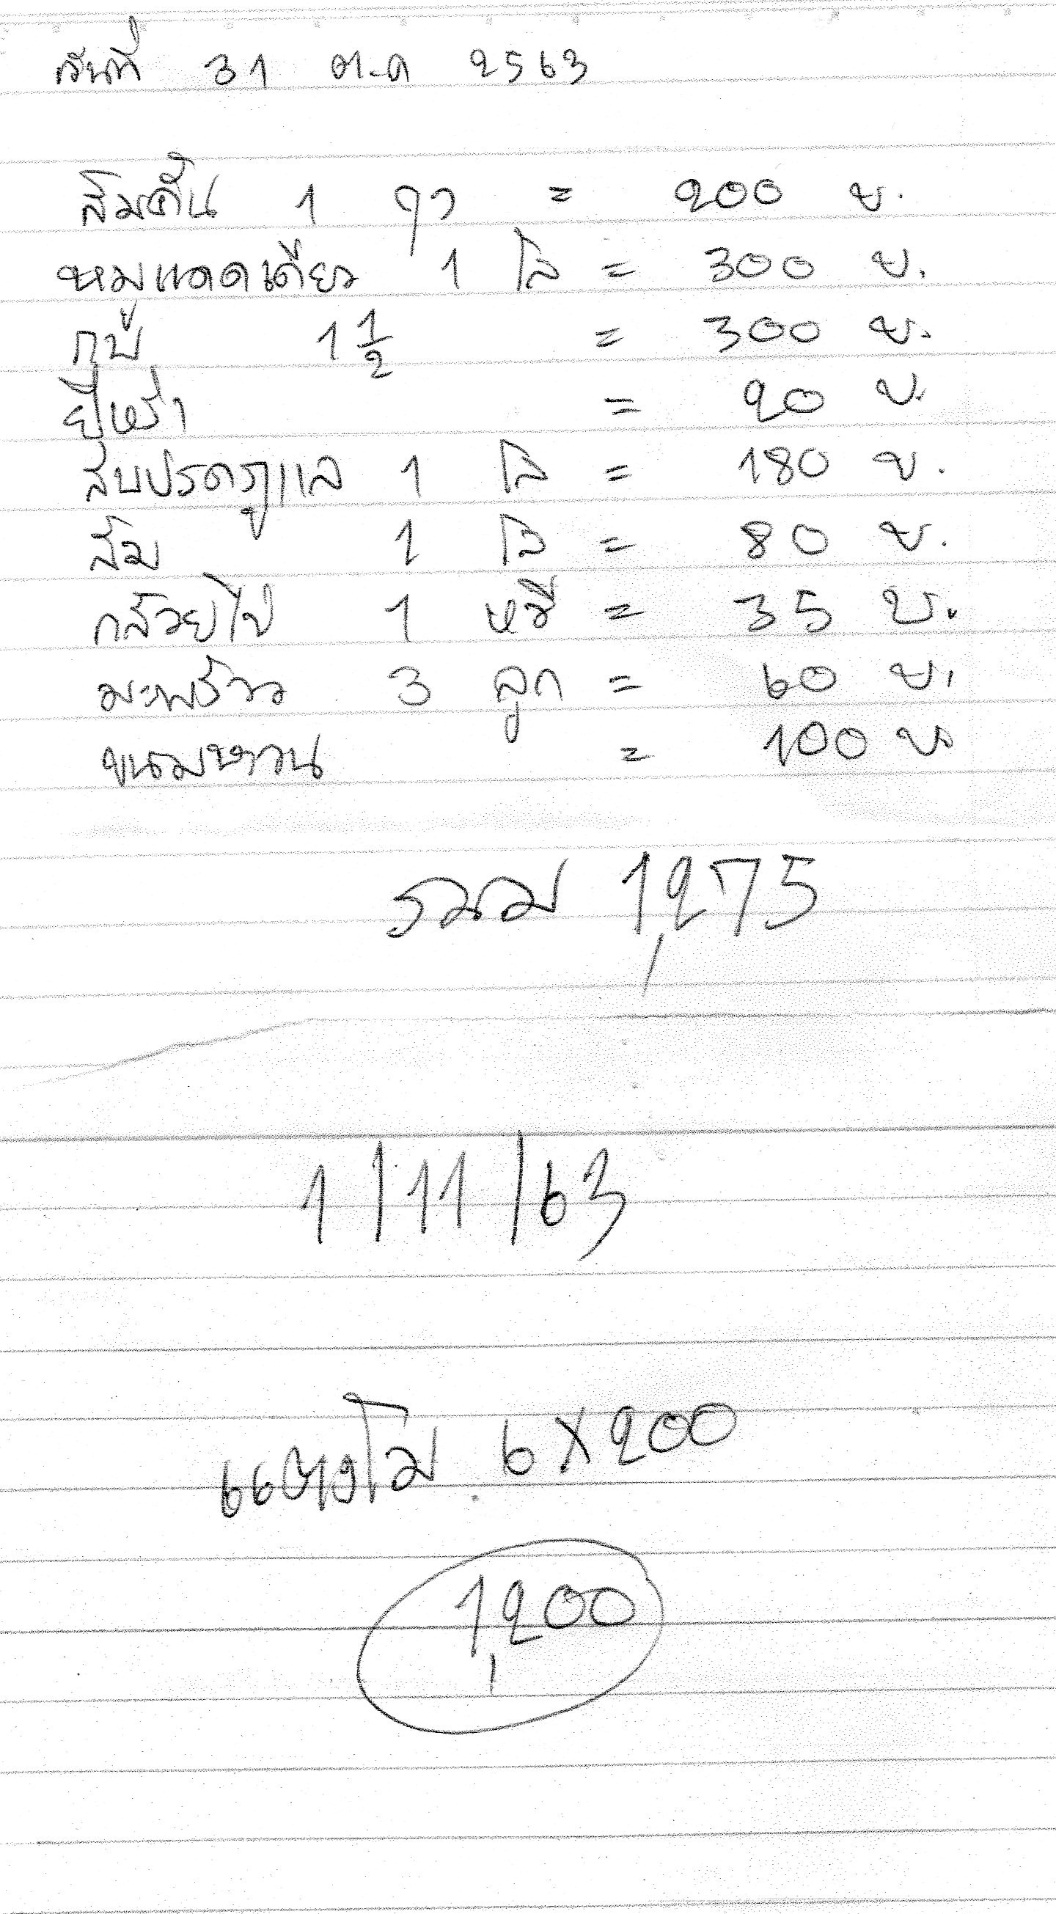 วันที่ 31 ต.ค 2563
ส้มคั้น 1 ถุง = 200 บ.
หมูแดดเดียว 1 โล = 300 บ.
กบ 1 1/2 = 300 บ.
ยี่หร่า = 20 บ.
สับปรดภูแล 1 โล = 180 บ.
ส้ม 1 โล = 80 บ.
กล้วยไข่ 1 หวี = 35 บ.
มะพร้าว 3 ลูก = 60 บ.
ขนมหวาน = 100 บ
รวม 1,275
1/11/63
แตงโม 6X200
1,200